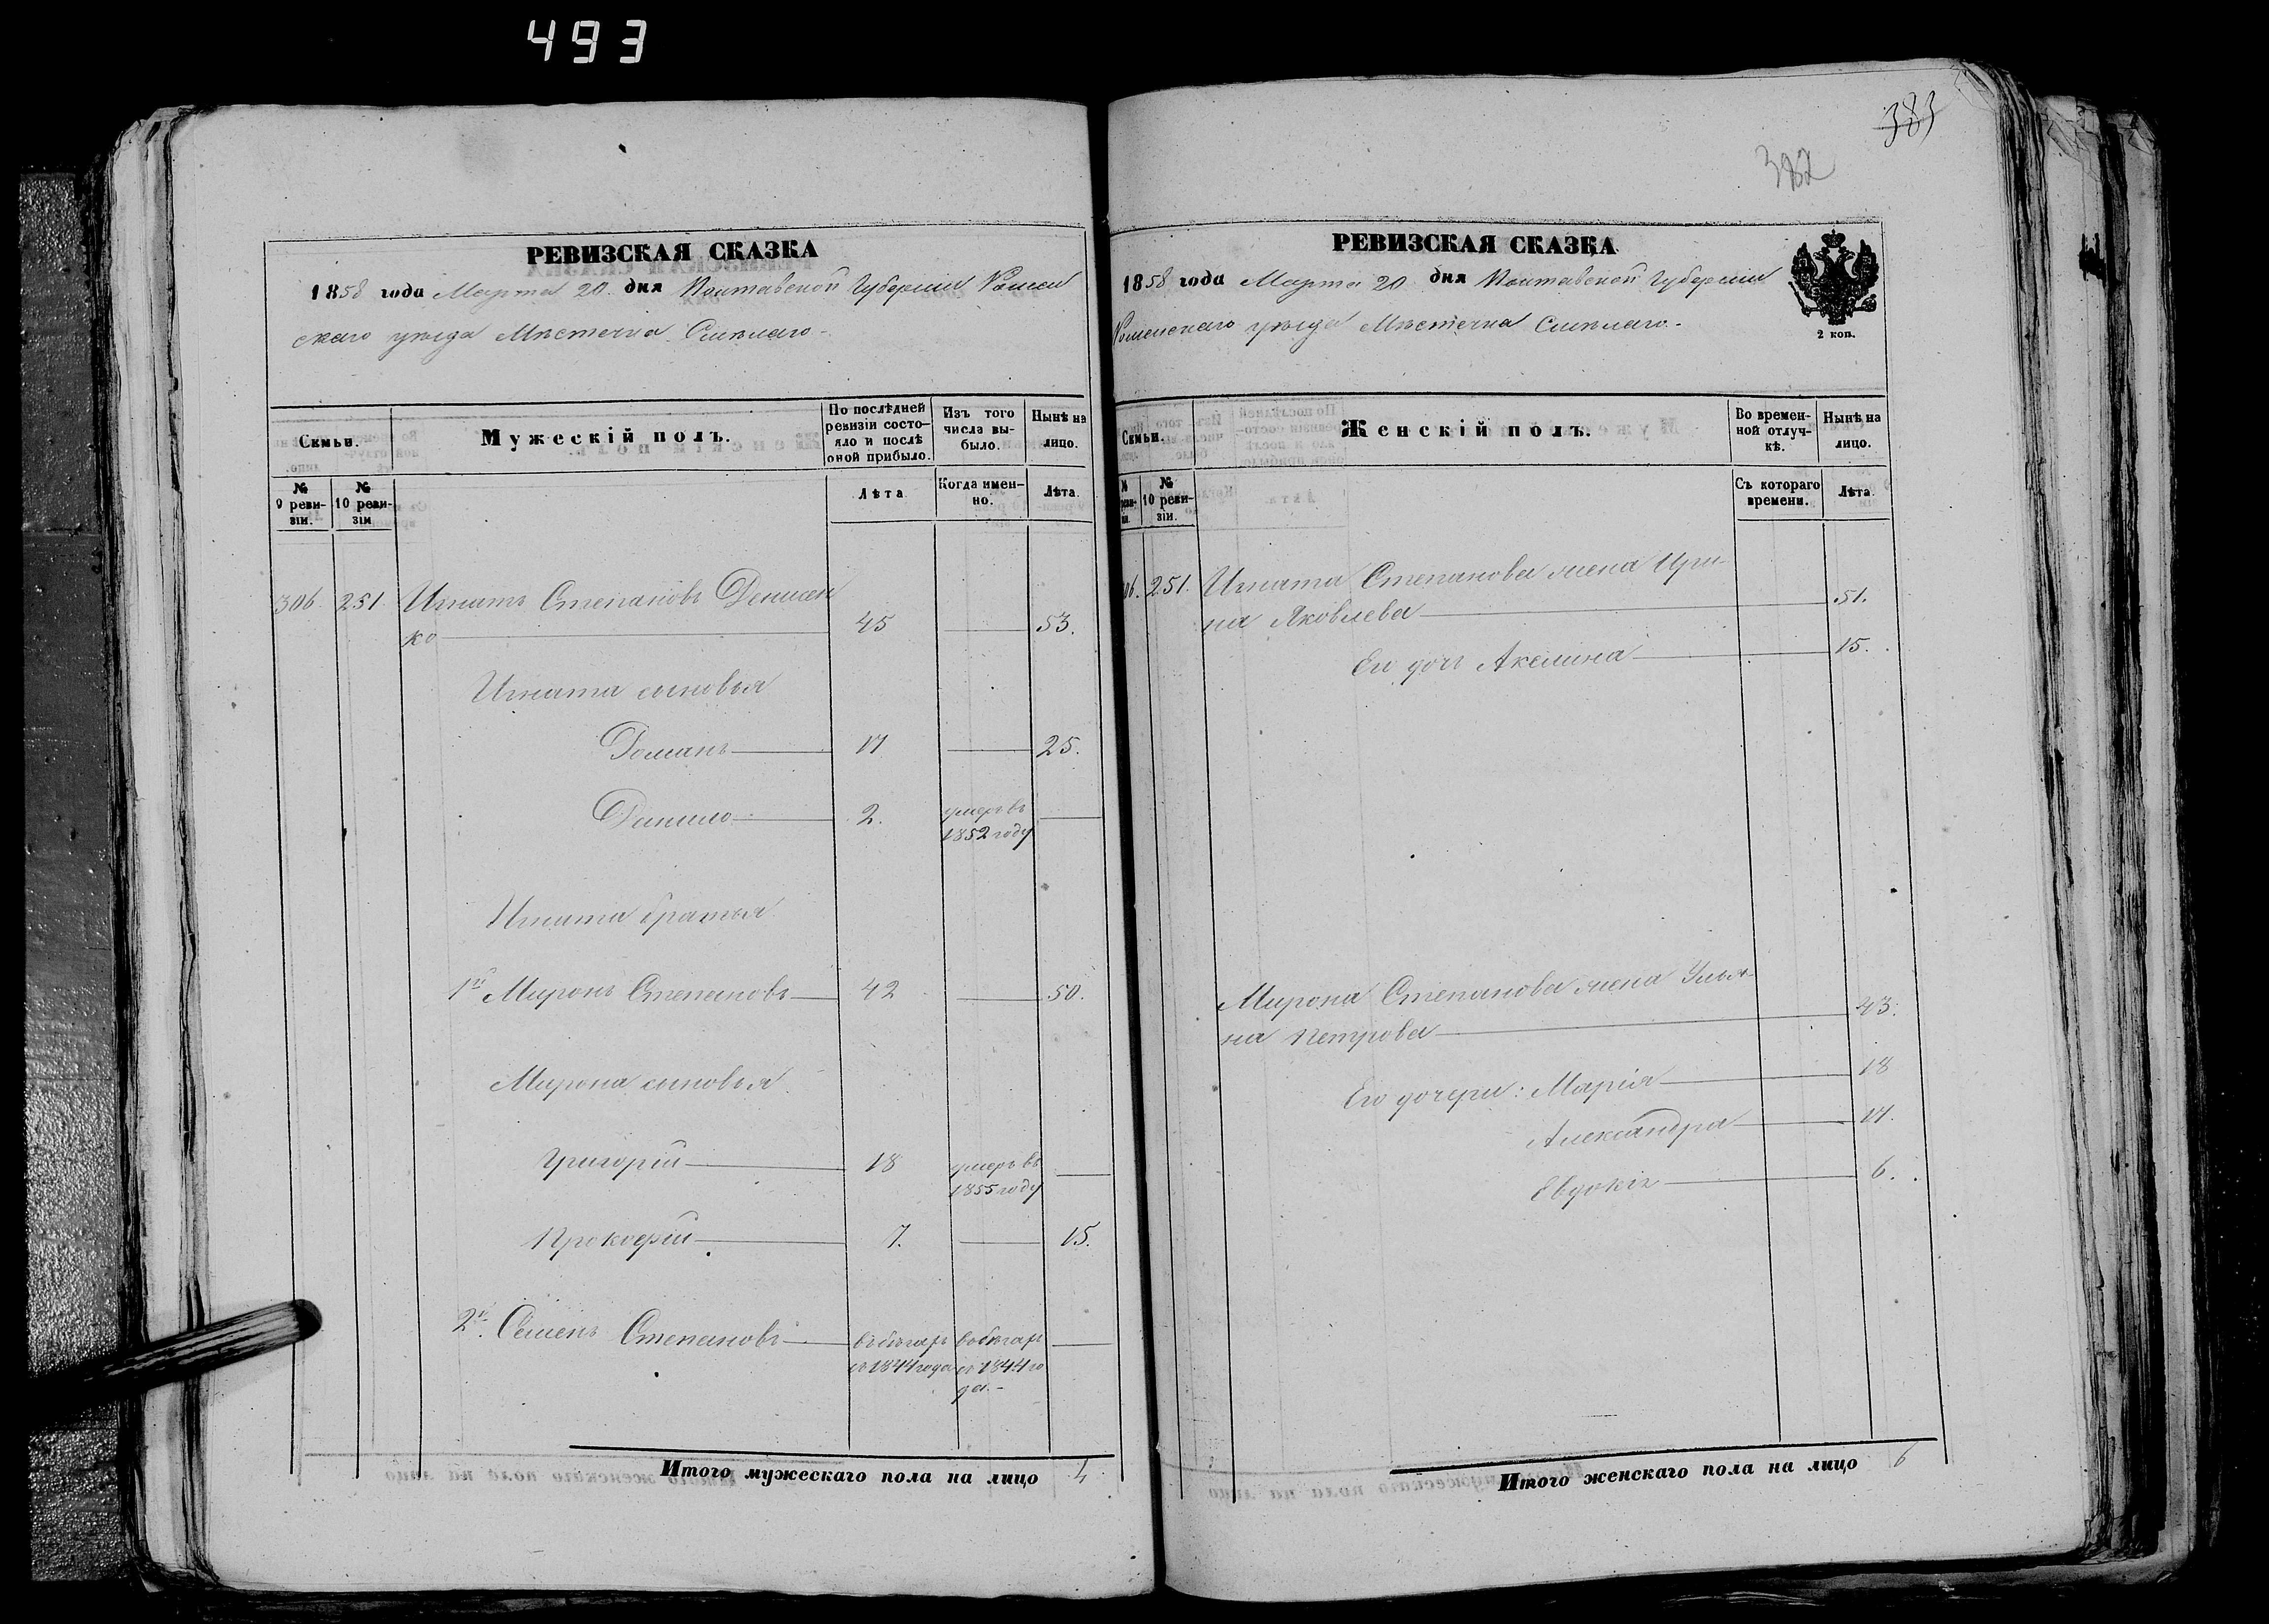 493
383
382
РЕВИЗСКАЯ СКАЗКА
1858 года Марта 20 дня Полтавской Губернiи Ромен
скаго уѣзда Мѣстечка Смѣлаго.
Семьи.
Мужескій полъ.
По послѣдней ревизіи состояло и послѣ оной прибыло.
Изъ того числа выбыло.
Нынѣ на лицо.
№ 9 ревизіи.
№ 10 ревизіи
Лѣта
Когда именно.
Лѣта.
306. 251. Игнатъ Степановъ Денисен
ко 45 53.
Игната сыновья
Доманъ 17 25.
Данило 2. умеръ въ
1852 году
Игната братья
1й Миронъ Степановъ 42 50.
Мирона сыновья
Григорій 18 умеръ въ
1855 году
Прокофій 7. 15.
2й Семенъ Степановъ въ бѣгахъ въ бѣгахъ
съ 1844 года съ 1844 го
да.
Итого мужескаго пола на лицо 4
РЕВИЗСКАЯ СКАЗКА
1858 года Марта 20 дня Полтавской Губернiи
Роменскаго уѣзда Мѣстечка Смѣлаго.
2 коп.
Семьи.
Женскій полъ.
Во временной отлучкѣ.
Нынѣ на лицо.
№
№ 10 ревизіи.
Съ котораго времени.
Лѣта.
251. Игната Степанова жена Ири-
на Яковлева 51.
Его дочь Акелина 15.
Мирона Степанова жена Улья-
на Петрова 43.
Его дочери: Марія 18
Александра 17.
Евдокія 6.
Итого женскаго пола на лицо 6